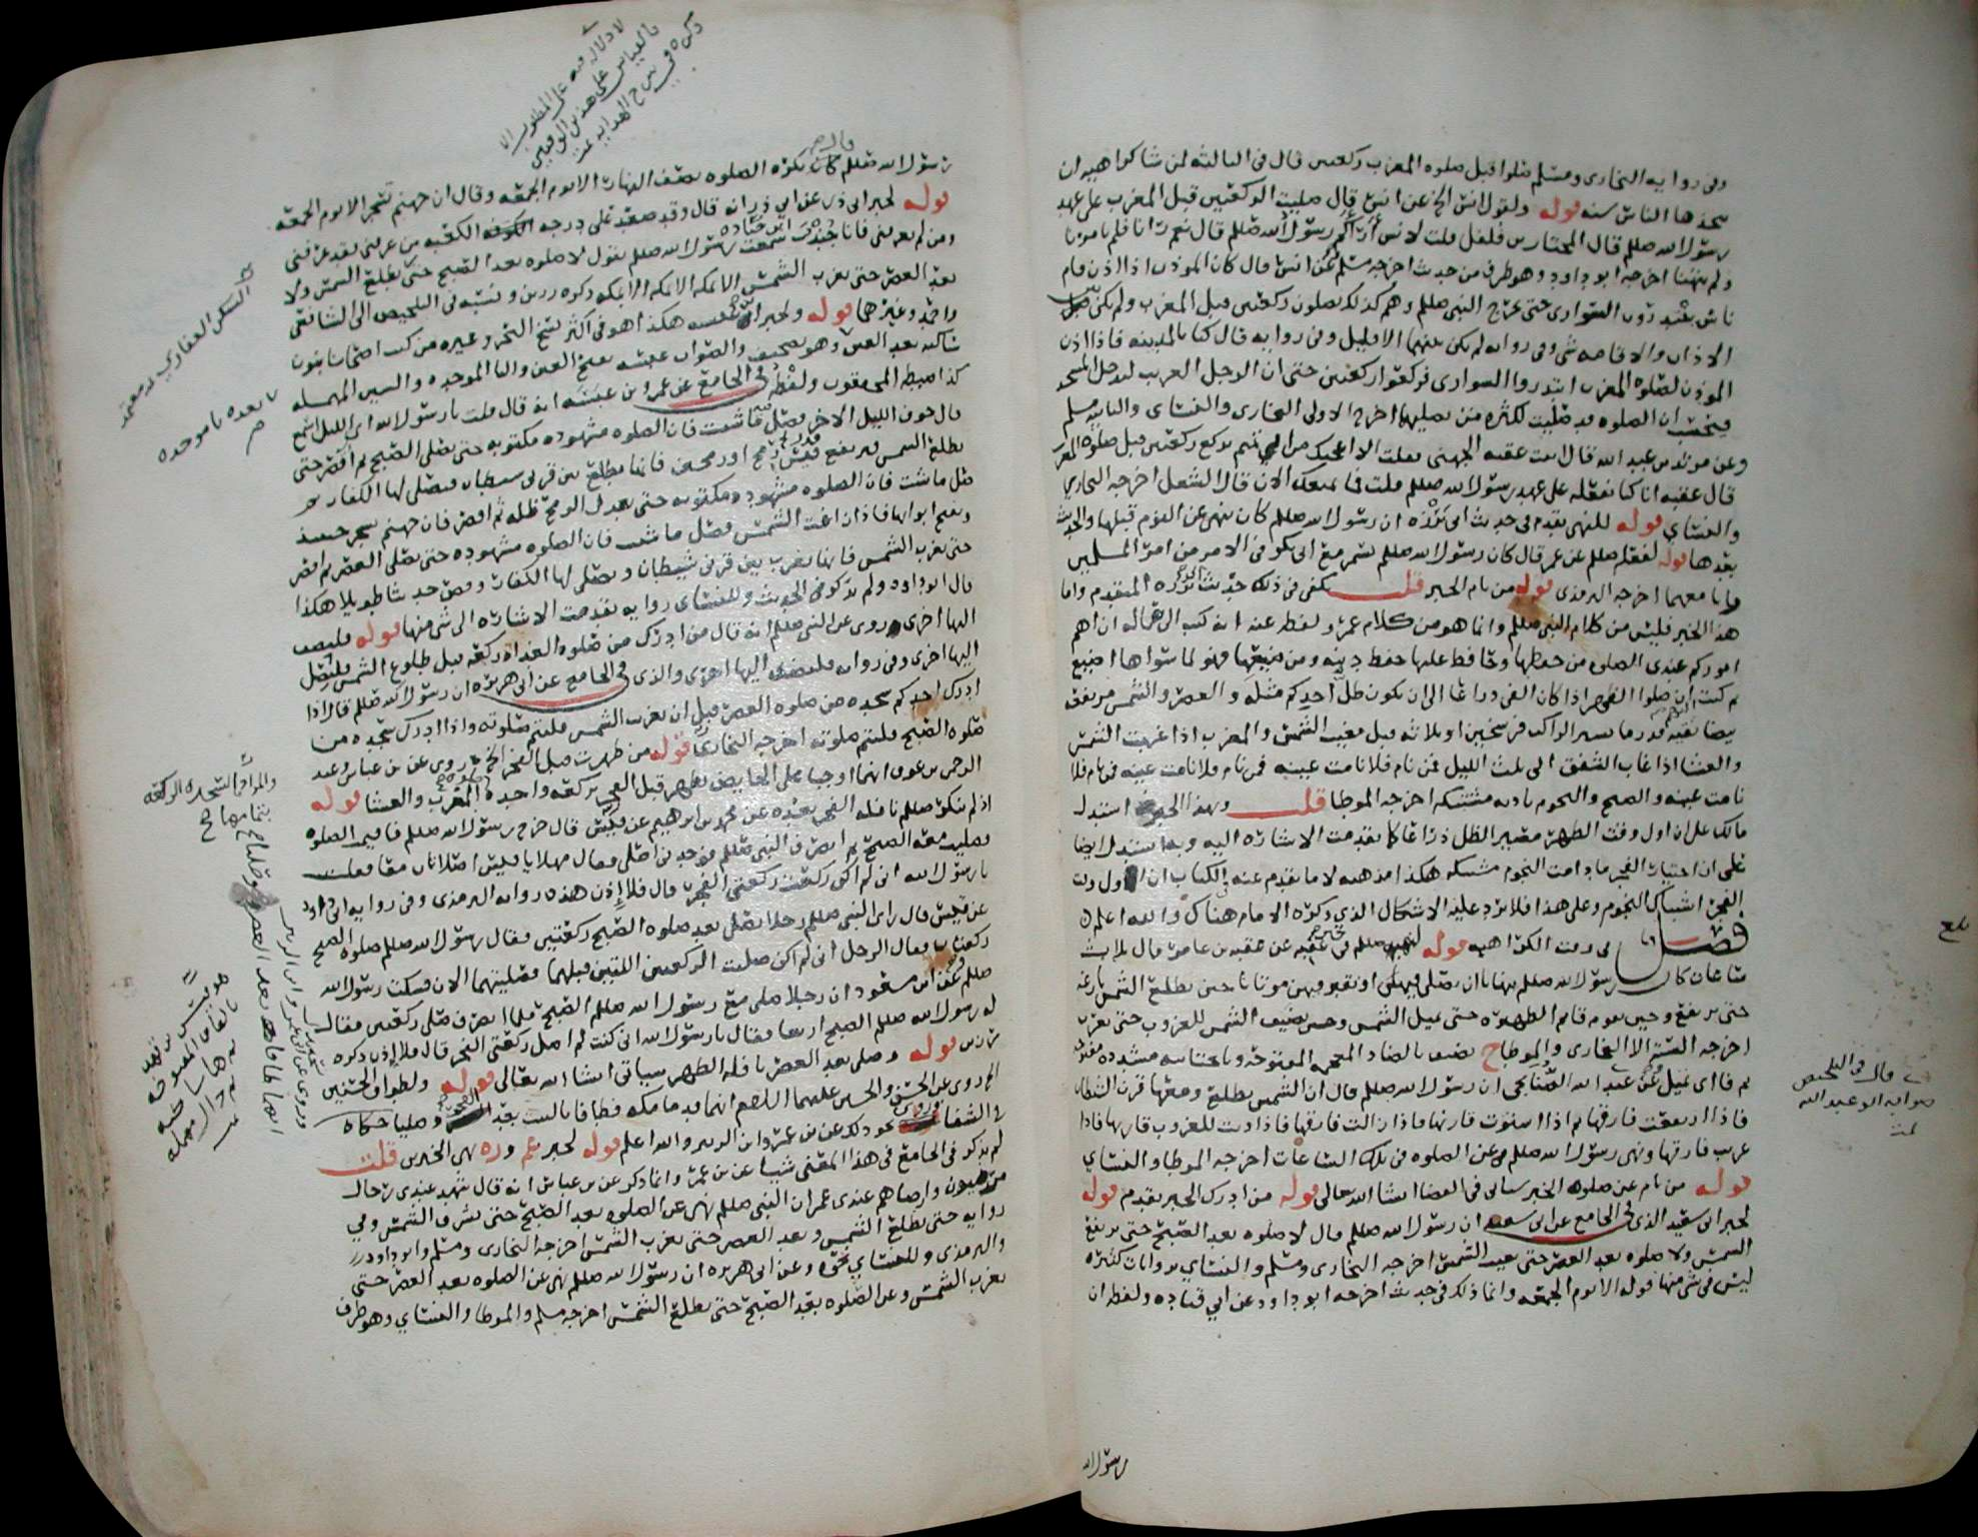 وفى روايه البخارى ومسلم صلوا قبل صلوه المغرب ركعتين قال فى الثالثه لمن شا كراهيه ان
يتخذها الناس سنه قوله ولقول انس الخ عن انس قال صليت الركعتين قبل المغرب على عهد
رسول الله صللم قال المختار بن فلفل قلت لانس أرآكم رسول الله صللم قال نعم رآنا فلم يامرنا
ولم ينهنا اخرجه ابو داود وهو طرف من حديث اخرجه مسلم وعن انس قال كان الموذن اذا اذن قام
ناس يبتدرون السوارى حتى يخرج النبى صللم وهم كذلك يصلون ركعتين قبل المغرب ولم يكن بين
الاذان والاقامه شى وفى روايه لم يكن بينهما الا قليل وفى روايه قال كنا بالمدينه فاذا اذن
الموذن لصلوه المغرب ابتدروا السوارى فركعوا ركعتين حتى ان الرجل الغريب ليدخل المسجد
فيحسب ان الصلوه قد صليت لكثره من يصليهما اخرج الاولى البخارى والنساى والثانيه مسلم
وعن مرثد بن عبد الله قال اتيت عقبه الجهنى فقلت الا اعجبك من ابى تميم يركع ركعتين قبل صلوه المغرب
قال عقبه انا كنا نفعله على عهد رسول الله صللم قلت فما يمنعك الان قال الشغل اخرجه البخارى
والنساى قوله للنهى تقدم فى حديث ابى برزه ان رسول الله صللم كان ينهى عن النوم قبلها والحديث
بعدها قوله لفعله صللم عن عمر قال كان رسول الله صللم يسمر مع ابى بكر فى الامر من امر المسلمين
وانا معهما اخرجه الترمذى قوله من نام الخبر قلت يكفى فى ذلك حديث ابى برزه المتقدم واما
هذا الخبر فليس من كلام النبى صللم وانما هو من كلام عمر ولفظه عنه انه كتب الى عماله ان اهم
اموركم عندى الصلوه من حفظها وحافظ عليها حفظ دينه ومن ضيعها فهو لما سواها اضيع
ثم كتب ان صلوا الظهر اذا كان الفى ذراعا الى ان يكون ظل احدكم مثله والعصر والشمس مرتفعه
بيضا نقيه قدر ما يسير الراكب فرسخين او ثلاثه قبل مغيب الشمس والمغرب اذا غربت الشمس
والعشا اذا غاب الشفق الى ثلث الليل فمن نام فلا نامت عينه فمن نام فلا نامت عينه فمن نام فلا
نامت عينه والصبح والنجوم باديه مشتبكه اخرجه الموطا قلت وبهذا الخبر استدل
مالك على ان اول وقت الظهر مصير الظل ذراعا كما تقدمت الاشاره اليه وبه استدل ايضا
على ان اختيار الفجر ما دامت النجوم مشتبكه هكذا مذهبه لا ما تقدم عنه فى الكتاب ان اول وقت
الفجر اشتباك النجوم وعلى هذا فلا يرد عليه الاشكال الذي ذكره الامام هناك والله اعلم
فصل فى وقت الكراهيه قوله لنهيه صللم فى خبر عقبه عن عقبه بن عامر قال ثلاث
ساعات كان رسول الله صللم ينهانا ان نصلى فيهن او نقبر فيهن موتانا حين تطلع الشمس بازغه
حتى ترتفع وحين يقوم قائم الظهيره حتى تميل الشمس وحين تضيف الشمس للغروب حتى تغرب
اخرجه السته الا البخارى والموطا ح تضيف بالضاد المعجمه المفتوحه وبالمثناه مشدده مفتوحه
ثم فا اى تميل وعن عبد الله الصنابحى ان رسول الله صللم قال ان الشمس تطلع ومعها قرن الشيطان
فاذا ارتفعت فارقها ثم اذا استوت قارنها فاذا زالت فارقها فاذا دنت للغروب قارنها فاذا
غربت فارقها ونهى رسول الله صللم عن الصلوه فى تلك الساعات اخرجه الموطا والنساي
قوله من نام عن صلوه الخبر سياتى فى القضا ان شا الله تعالى قوله من ادرك الخبر تقدم قوله
لخبر ابى سعيد الذى فى الجامع عن ابى سعيد ان رسول الله صللم قال لا صلوه بعد الصبح حتى ترتفع
الشمس ولا صلوه بعد العصر حتى تغيب الشمس اخرجه البخارى ومسلم والنساي بروايات كثيره
ليس فى شى منها قوله الا يوم الجمعه وانما ذلك فى حديث اخرجه ابو داود عن ابي قتاده ولفظه ان
رسول الله
قال فى التلخيص
صوابه ابو عبد الله
تمت
رسول الله صللم كان يكره الصلوه نصف النهار الا يوم الجمعه وقال ان جهنم تسجر الا يوم الجمعه
قوله لخبر ابى ذر عن ابي ذر انه قال وقد صعد على درجه الكعبه من عرفنى فقد عرفنى
ومن لم يعرفنى فانا جندب سمعت رسول الله صللم يقول لا صلوه بعد الصبح حتى تطلع الشمس ولا
بعد العصر حتى تغرب الشمس الا بمكه الا بمكه الا بمكه ذكره رزين ونسبه فى التلخيص الى الشافعى
واحمد وغيرهما قوله ولخبر ابن عنبسه هكذا هو فى اكثر نسخ البحر وغيره من كتب اصحابنا بنون
ساكنه بعد العين وهو تصحيف والصواب عبسه بفتح العين والبا الموحده والسين المهمله
كذا ضبطه المحققون ولفظه فى الجامع عن عمرو بن عبسه انه قال قلت يا رسول الله اى الليل اسمع
قال جوف الليل الاخر فصل ما شئت فان الصلوه مشهوده مكتوبه حتى تصلى الصبح ثم اقصر حتى
تطلع الشمس فترتفع قيس رمح او رمحين فانها تطلع بين قرنى شيطان ويصلى لها الكفار ثم
صل ما شئت فان الصلوه مشهوده مكتوبه حتى يعدل الرمح ظله ثم اقصر فان جهنم تسجر حينئذ
وتفتح ابوابها فاذا زاغت الشمس فصل ما شئت فان الصلوه مشهوده حتى تصلى العصر ثم اقصر
حتى تغرب الشمس فانها تغرب بين قرنى شيطان ويصلى لها الكفار وقص حديثا طويلا هكذا
قال ابو داود ولم يذكر فى الحديث وللنساى روايه تقدمت الاشاره الى شى منها قوله فليضف
اليها اخرى روى عن النبى صللم انه قال من ادرك من صلوه الغداه ركعه قبل طلوع الشمس فليصل
اليها اخرى وفى روايه فليضف اليها اخرى والذى فى الجامع عن ابى هريره ان رسول الله صللم قال اذا
ادرك احدكم سجده من صلوه العصر قبل ان تغرب الشمس فليتم صلوته واذا ادرك سجده من
صلوه الصبح فليتم صلوته اخرجه البخارى قوله من طهرت قبل الفجر الخ روى عن بن عباس وعبد
الرحمن بن عوف انهما اوجبا على الحايض تطهر قبل الفجر بركعه واحده المغرب والعشا قوله
اذ لم ينكر صللم نافله الفجر بعده عن محمد بن ابرهيم عن قيس قال خرج رسول الله صللم فاقيمت الصلوه
فصليت معه الصبح ثم انصرف النبى صللم فوجدنى اصلى فقال مهلا يا قيس اصلاتان معا فقلت
يا رسول الله انى لم اكن ركعت ركعتى الفجر قال فلا اذن هذه روايه الترمذى وفى روايه ابى داود
عن قيس قال راى النبى صللم رجلا يصلى بعد صلوه الصبح ركعتين فقال رسول الله صللم صلوه الصبح
ركعتان فقال الرجل انى لم اكن صليت الركعتين اللتين قبلهما فصليتهما الان فسكت رسول الله
صللم وعن ابن مسعود ان رجلا صلى مع رسول الله صللم الصبح فلما انصرف صلى ركعتين فقال
له رسول الله صللم الصبح اربعا فقال يا رسول الله انى كنت لم اصل ركعتى الفجر قال فلا اذن ذكره
رزين قوله وصلى بعد العصر نافله الظهر سياتى ان شا الله تعالى قوله ولطواف الحسنين
الخ روى عن الحسن والحسين عليهما السلام انهما قدما مكه فطافا بالبيت بعد العصر وصليا حكاه
فى الشفا وروى نحو ذلك عن بن عمر وابن الزبير والله اعلم قوله لخبر عم وره نهى الخبرين قلت
لم يذكر فى الجامع فى هذا المعنى شيا عن بن عمر وانما ذكر عن بن عباس انه قال شهد عندى رجال
مرضيون وارضاهم عندى عمر ان النبى صللم نهى عن الصلوه بعد الصبح حتى تشرق الشمس وفى
روايه حتى تطلع الشمس وبعد العصر حتى تغرب الشمس اخرجه البخارى ومسلم وابو داود
والترمذى وللنساي نحوه وعن ابى هريره ان رسول الله صللم نهى عن الصلوه بعد العصر حتى
تغرب الشمس وعن الصلوه بعد الصبح حتى تطلع الشمس اخرجه مسلم والموطا والنساي وهو طرف
والمراد بالسجده الركعه
بتمامها